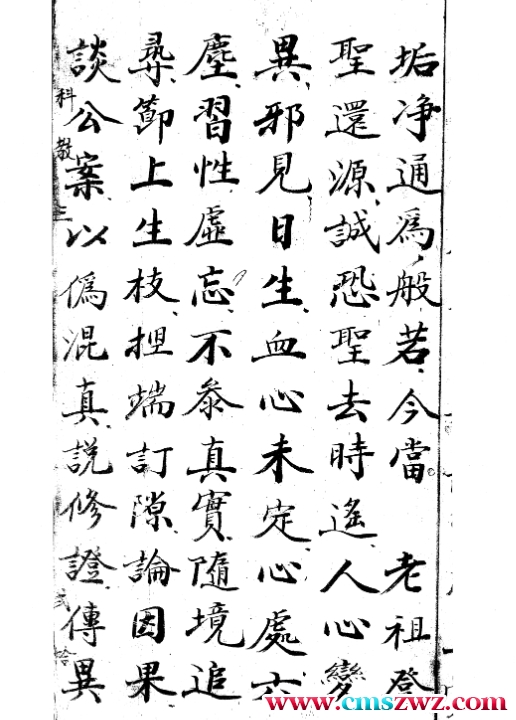 垢净通爲般若今當 老祖登
聖還源誠恐聖去時遙人心變
異邪見日生血心未定心處六
塵習性虛忘不叅真實隨境追
尋節上生枝揑端訂隙論因果
談公案以僞混真説修證傳異
科教三 弍拾
www.cmszwz.com